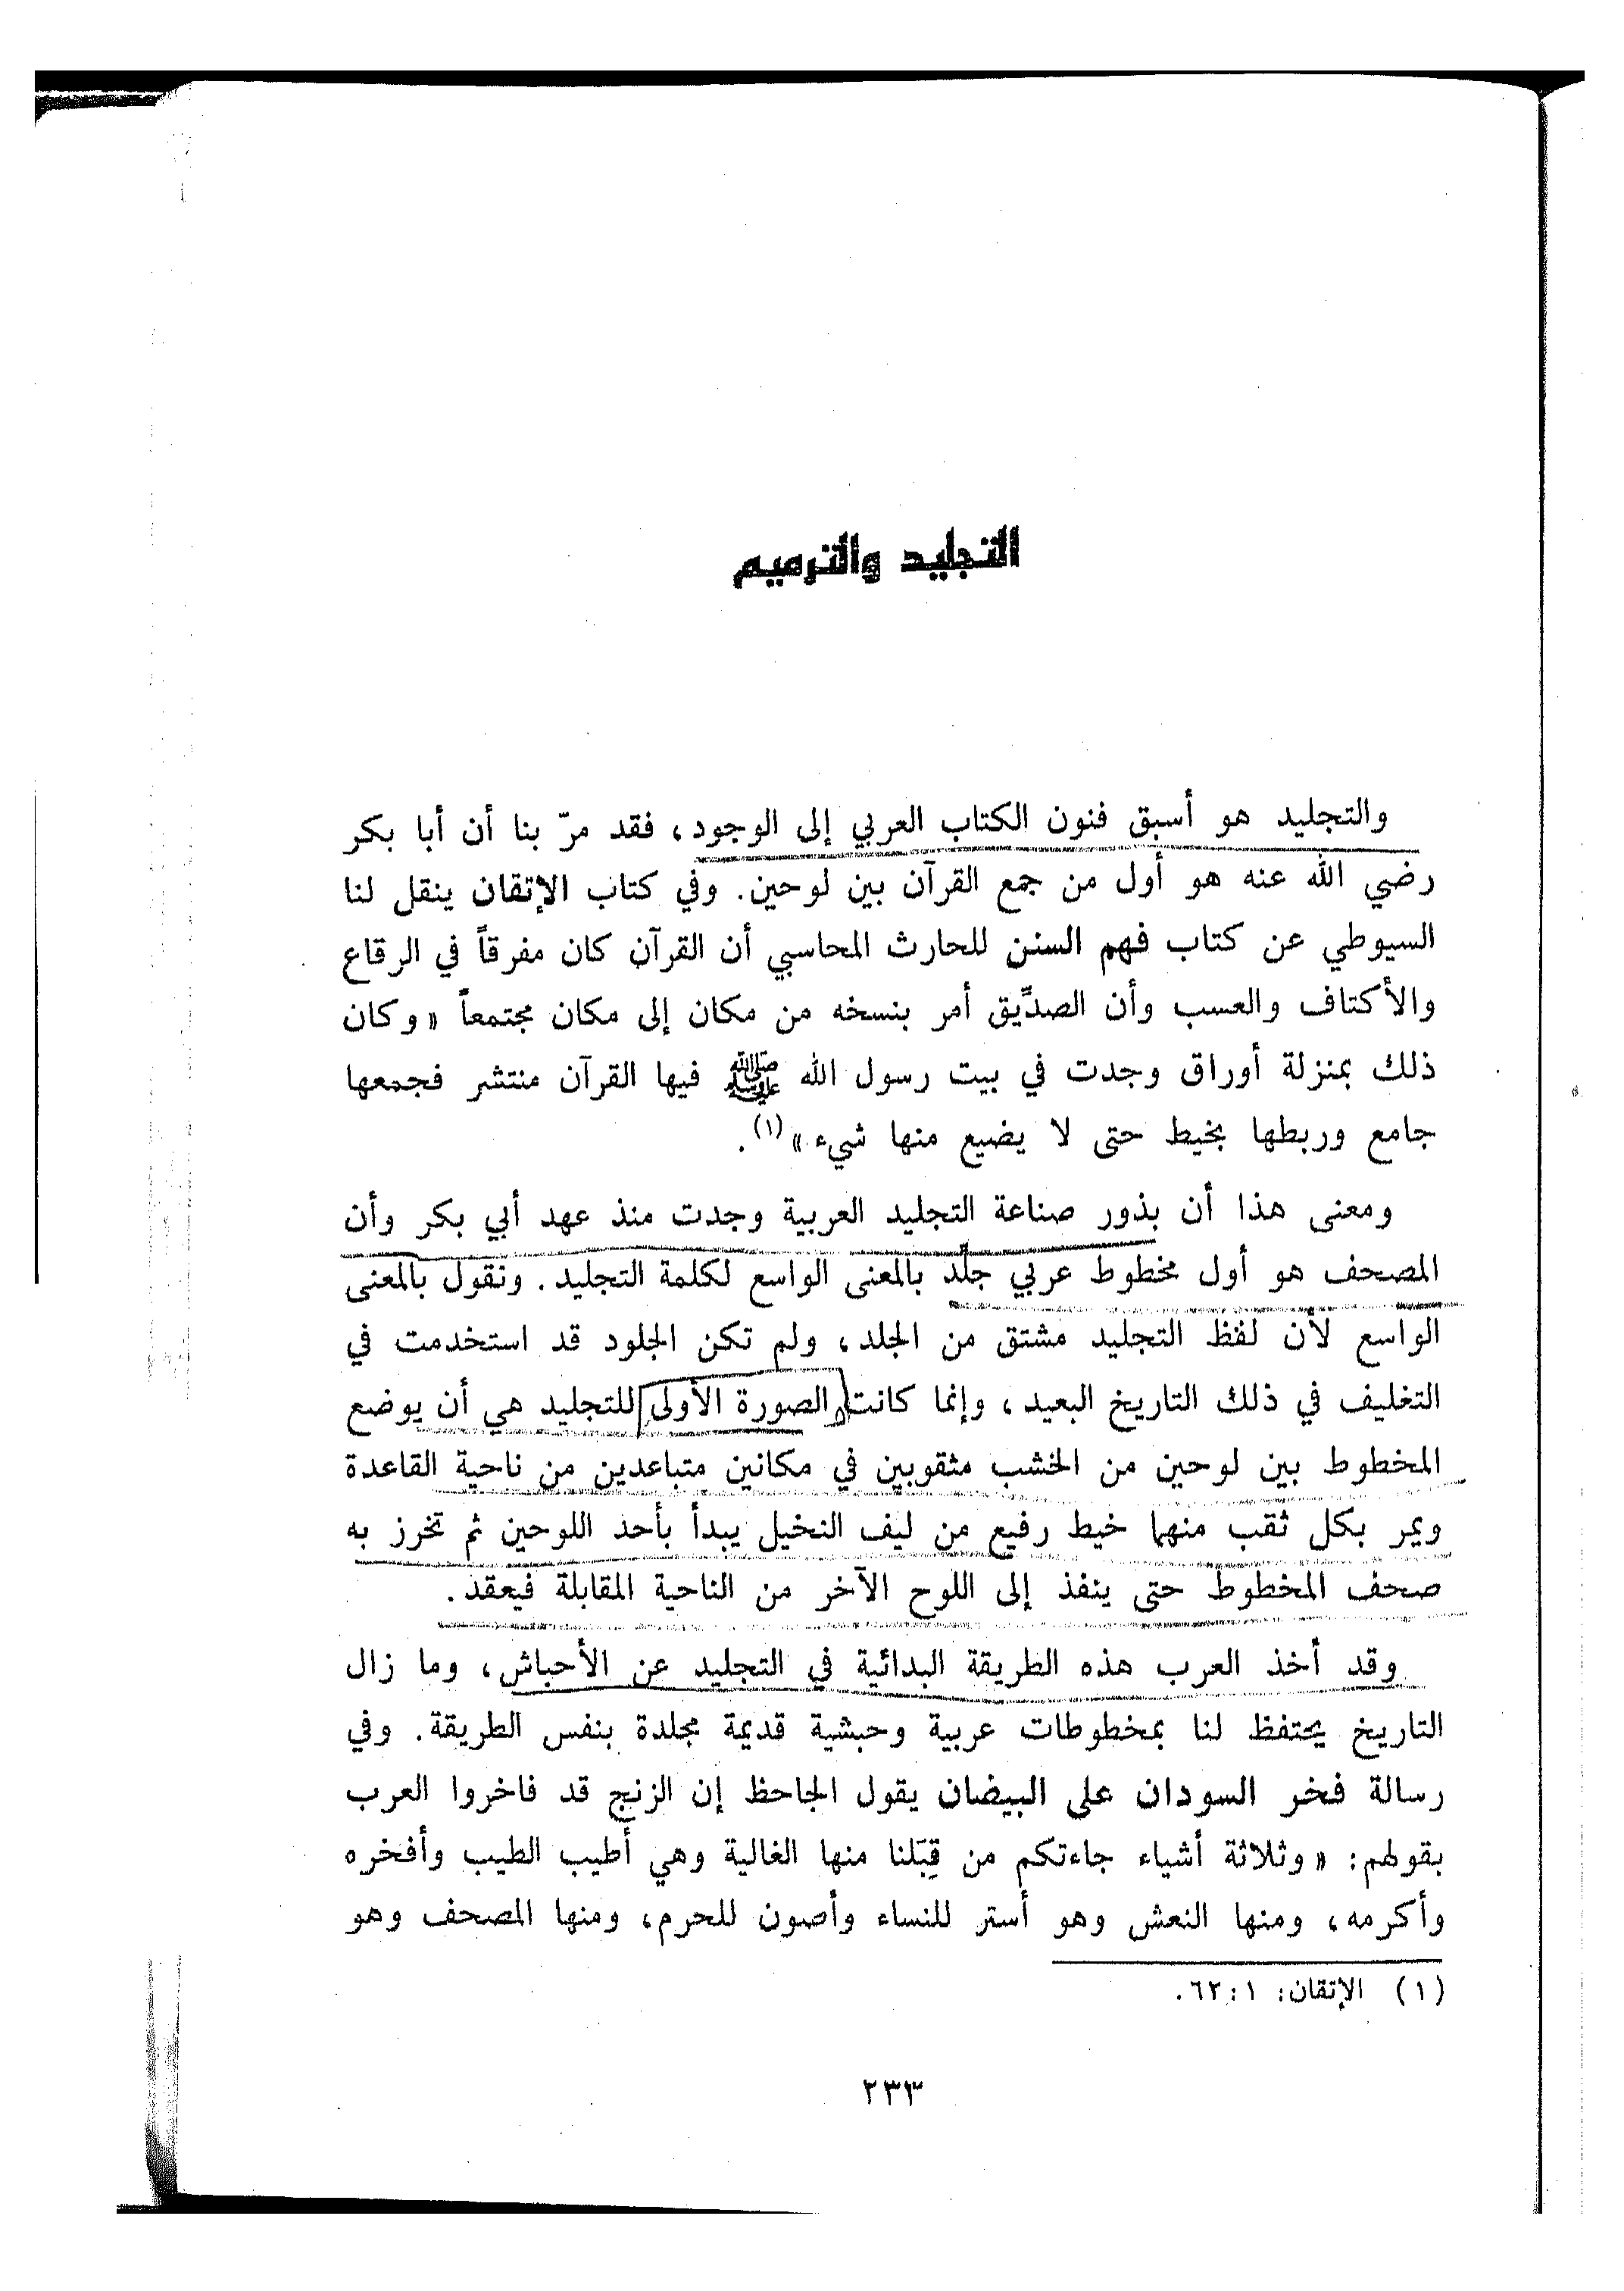 التجليد والترميم
والتجليد هو أسبق فنون الكتاب العربي إلى الوجود، فقد مرّ بنا أن أبا بكر
رضي الله عنه هو أول من جمع القرآن بين لوحين. وفي كتاب الإتقان ينقل لنا
السيوطي عن كتاب فهم السنن للحارث المحاسبي أن القرآن كان مفرقاً في الرقاع
والأكتاف والعسب وأن الصدِّيق أمر بنسخه من مكان إلى مكان مجتمعاً «وكان
ذلك بمنزلة أوراق وجدت في بيت رسول الله ﷺ فيها القرآن منتشر فجمعها
جامع وربطها بخيط حتى لا يضيع منها شيء»(١).
ومعنى هذا أن بذور صناعة التجليد العربية وجدت منذ عهد أبي بكر وأن
المصحف هو أول مخطوط عربي جلّد بالمعنى الواسع لكلمة التجليد. ونقول بالمعنى
الواسع لأن لفظ التجليد مشتق من الجلد، ولم تكن الجلود قد استخدمت في
التغليف في ذلك التاريخ البعيد، وإنما كانت الصورة الأولى للتجليد هي أن يوضع
المخطوط بين لوحين من الخشب مثقوبين في مكانين متباعدين من ناحية القاعدة
ويمر بكل ثقب منهما خيط رفيع من ليف النخيل يبدأ بأحد اللوحين ثم تخرز به
صحف المخطوط حتى ينفذ إلى اللوح الآخر من الناحية المقابلة فيعقد.
وقد أخذ العرب هذه الطريقة البدائية في التجليد عن الأحباش، وما زال
التاريخ يحتفظ لنا بمخطوطات عربية وحبشية قديمة مجلدة بنفس الطريقة. وفي
رسالة فخر السودان على البيضان يقول الجاحظ إن الزنج قد فاخروا العرب
بقولهم: «وثلاثة أشياء جاءتكم من قِبَلنا منها الغالية وهي أطيب الطيب وأفخره
وأكرمه، ومنها النعش وهو أستر للنساء وأصون للحرم، ومنها المصحف وهو
(١) الإتقان: ١: ٦٢.
٢٣٣